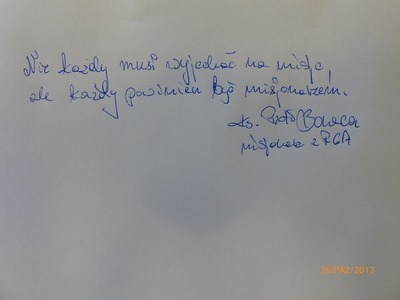 Nie każdy musi wyjechać na misje,
ale każdy powinien być misjonarzem.
Ks.
misjonarz z RCA
26/PAZ/2017